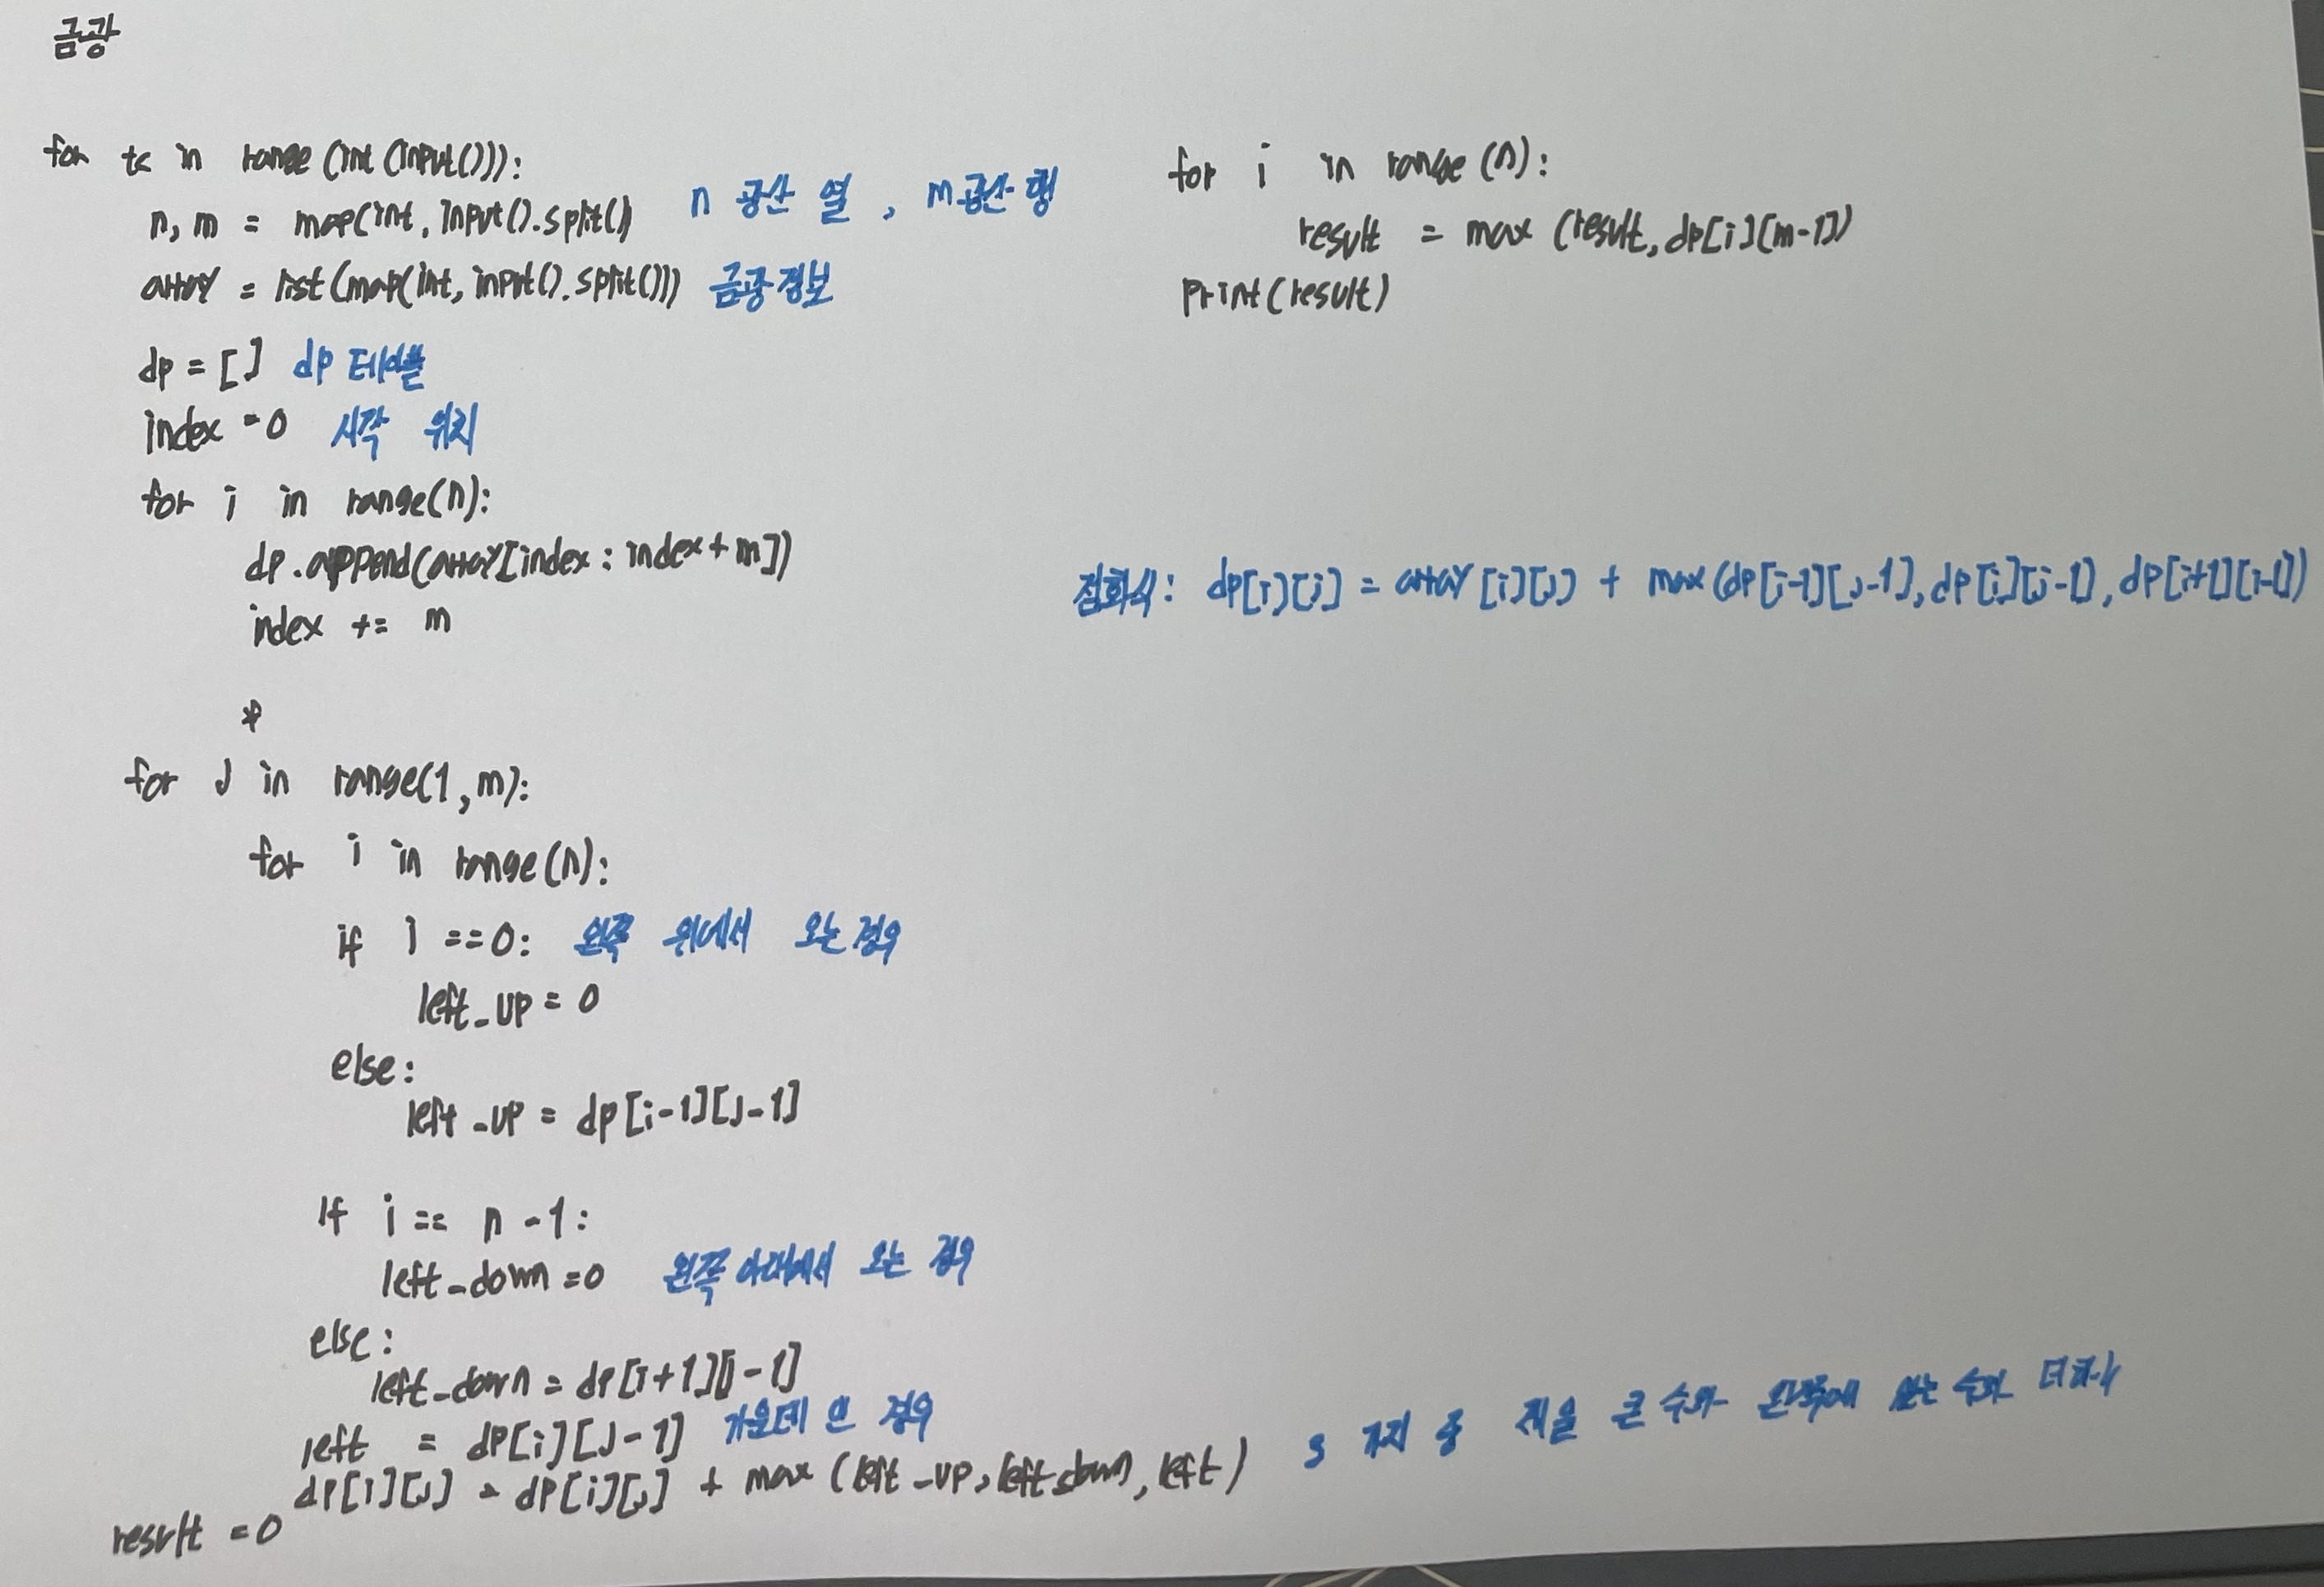 금광
for tc in range(int(input())):
n, m = map(int, input().split()) n 광산 열, m 광산 행
array = list(map(int, input().split())) 금광 정보
dp = [] dp 테이블
index = 0 시작 위치
for i in range(n):
dp.append(array[index : index + m])
index += m
*
for j in range(1, m):
for i in range(n):
if i == 0: 왼쪽 위에서 오는 경우
left_up = 0
else:
left_up = dp[i-1][j-1]
If i == n - 1:
left_down = 0 왼쪽 아래에서 오는 경우
else:
left_down = dp[i+1][j-1]
left = dp[i][j-1] 가운데 인 경우
dp[i][j] = dp[i][j] + max (left_up, left_down, left) 3 가지 중 제일 큰 수와 왼쪽에 있는 수와 더하니
result = 0
for i in range (n):
result = max (result, dp[i][m-1])
print(result)
점화식 : dp[i][j] = array[i][j] + max(dp[i-1][j-1], dp[i][j-1], dp[i+1][j-1])